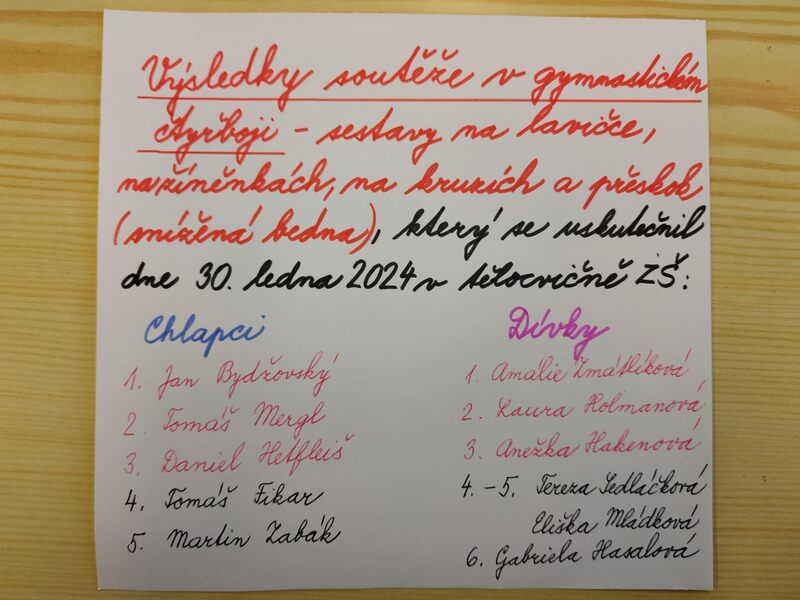 Výsledky soutěže v gymnastickém
čtyřboji - sestavy na lavičce,
na žíněnkách, na kruzích a přeskok
(snížená bedna), který se uskutečnil
dne 30. ledna 2024 v tělocvičně ZŠ:
Chlapci
1. Jan Bydžovský
2. Tomáš Mergl
3. Daniel Hetfleiš
4. Tomáš Fikar
5. Martin Zabák
Dívky
1. Amálie Zmátlíková
2. Laura Holmanová
3. Anežka Hakenová
4. - 5. Tereza Sedláčková
Eliška Mládková
6. Gabriela Hasalová